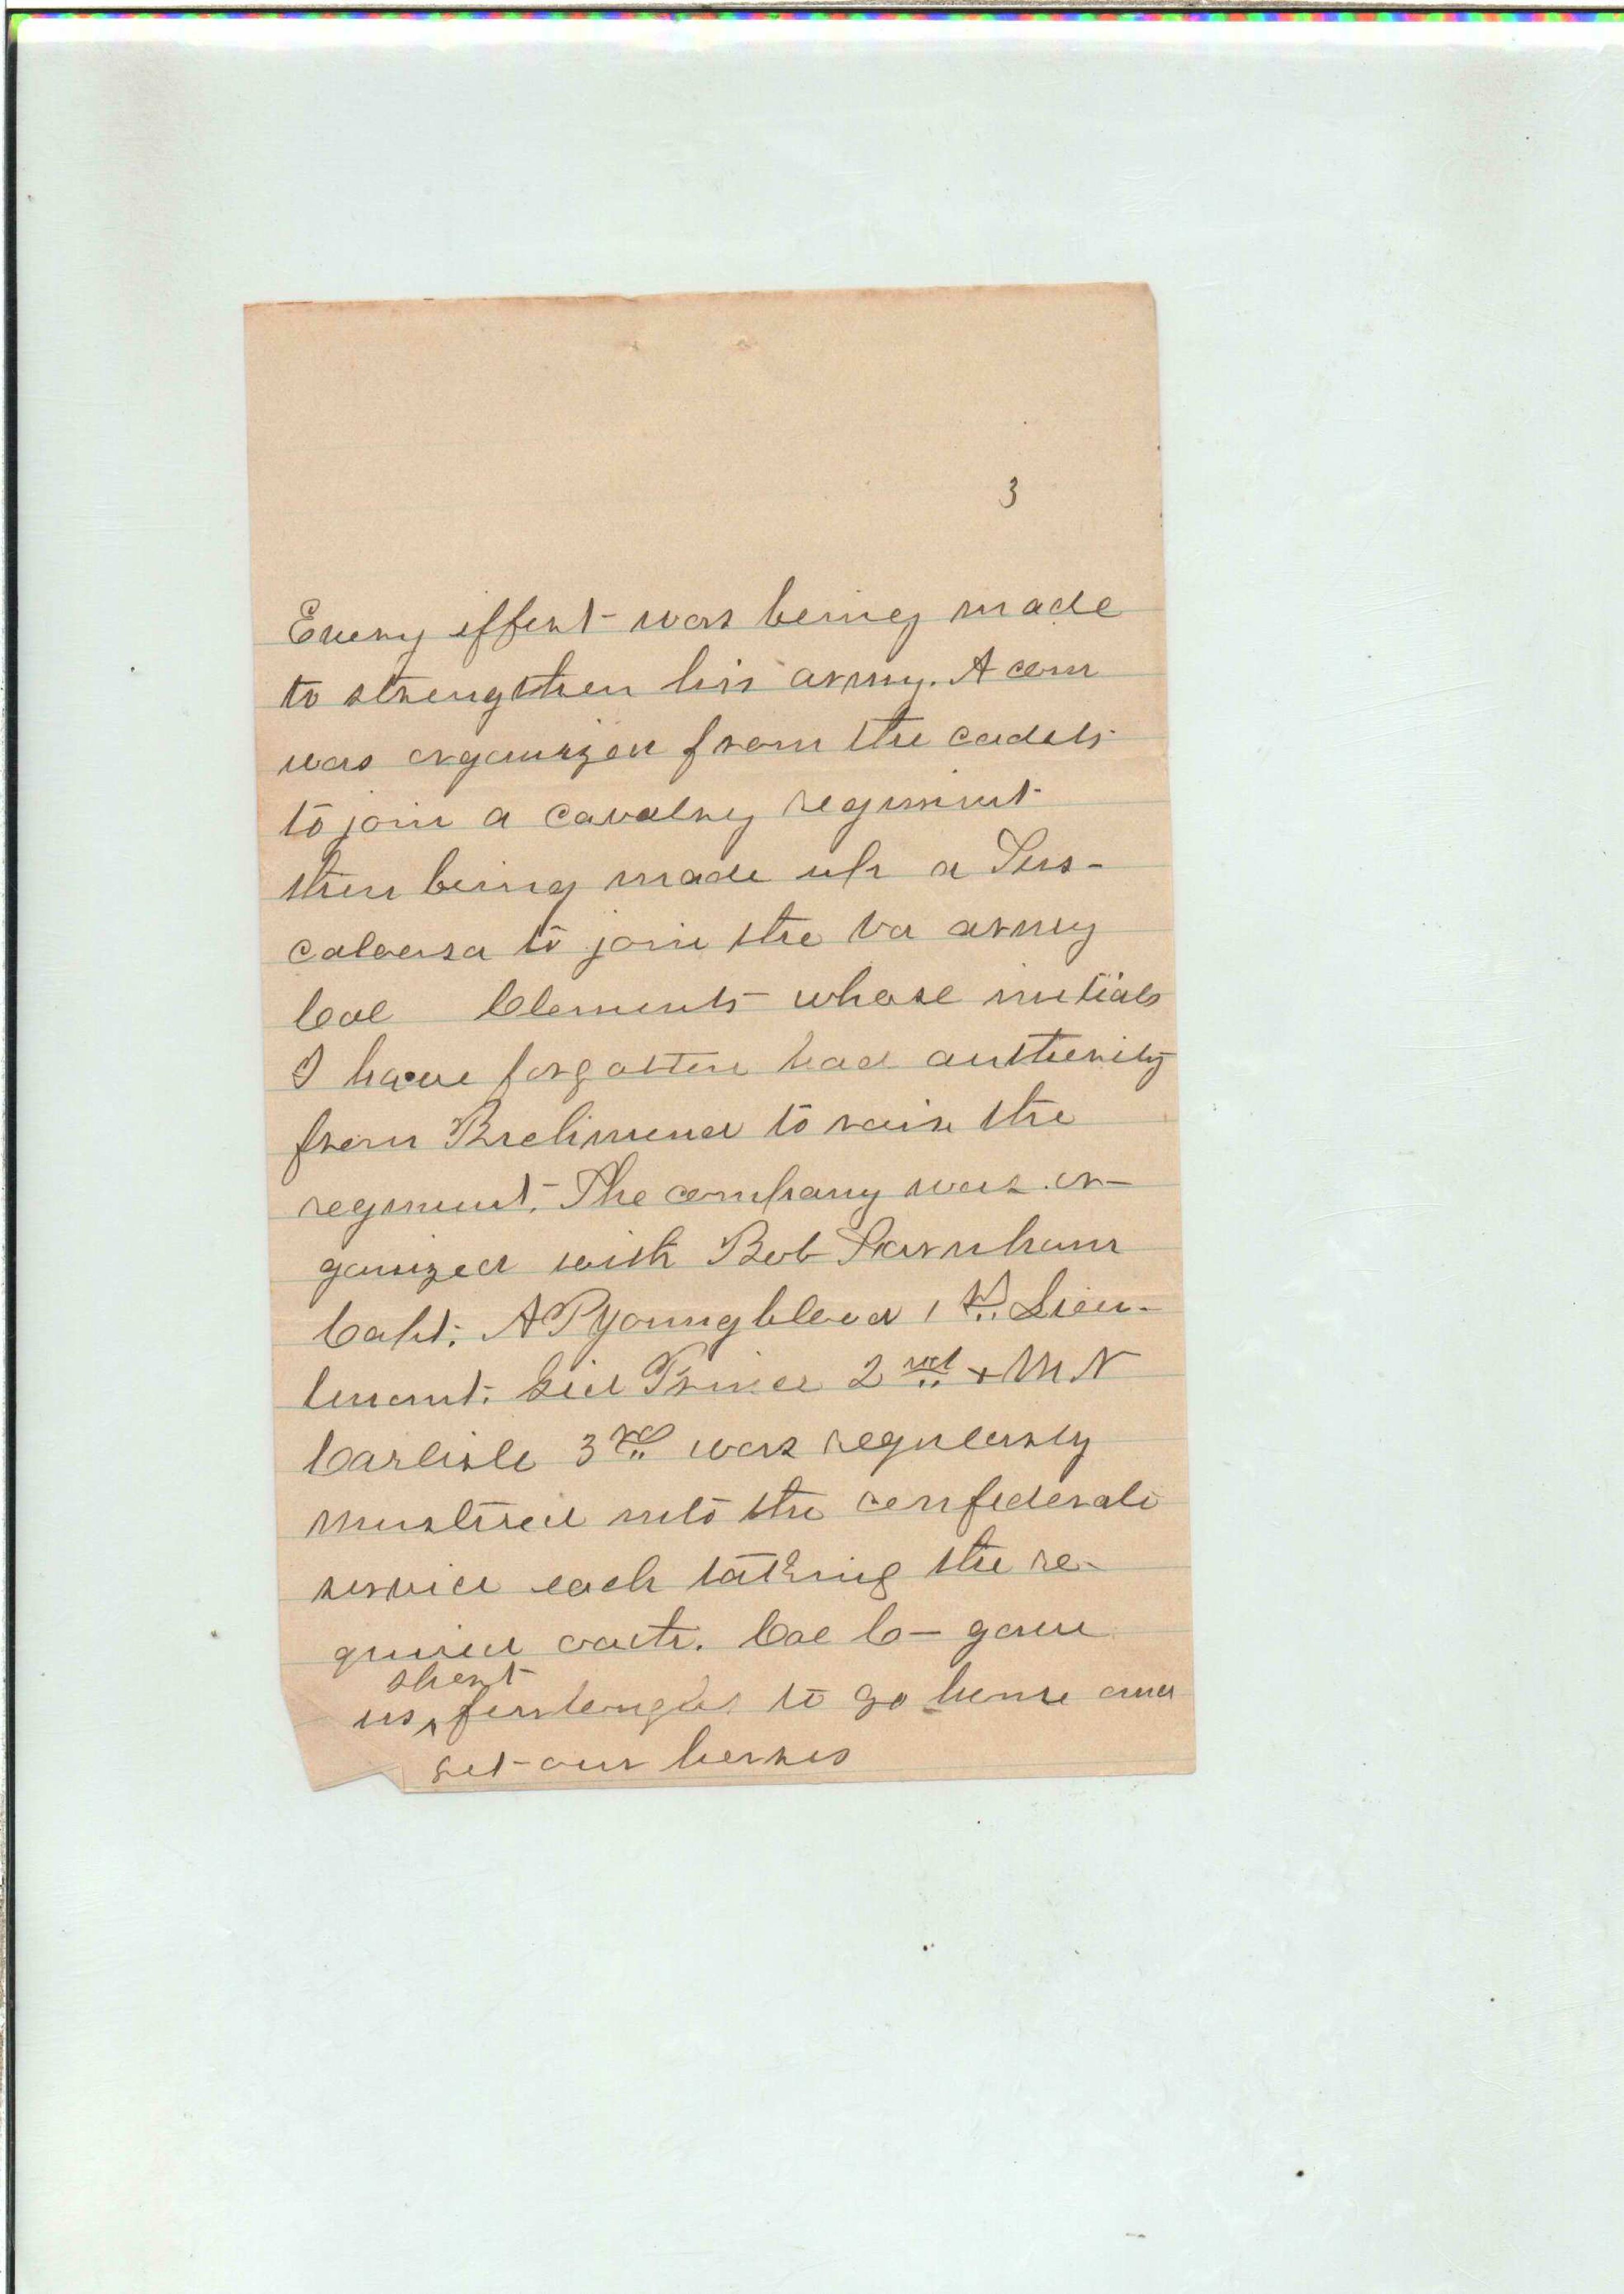 3
Every effort was being made
to strengthen his army. A com
was organized from the cadets
to join a cavalry regiment
then being made up a Tus-
caloosa to join the Va army
Col Clements whose initials
I have forgotten had authority
from Richmond to raise the
regiment. The company was or-
ganized with Bob
Capt. A P Youngblood 1st. Lieu-
tenant. Sid 2nd + M N
Carlisle 3rd was regularly
mustered into the confederate
service each taking the re-
quired oath. Col C— gave
short
us ^ furloughs to go home and
get our horses